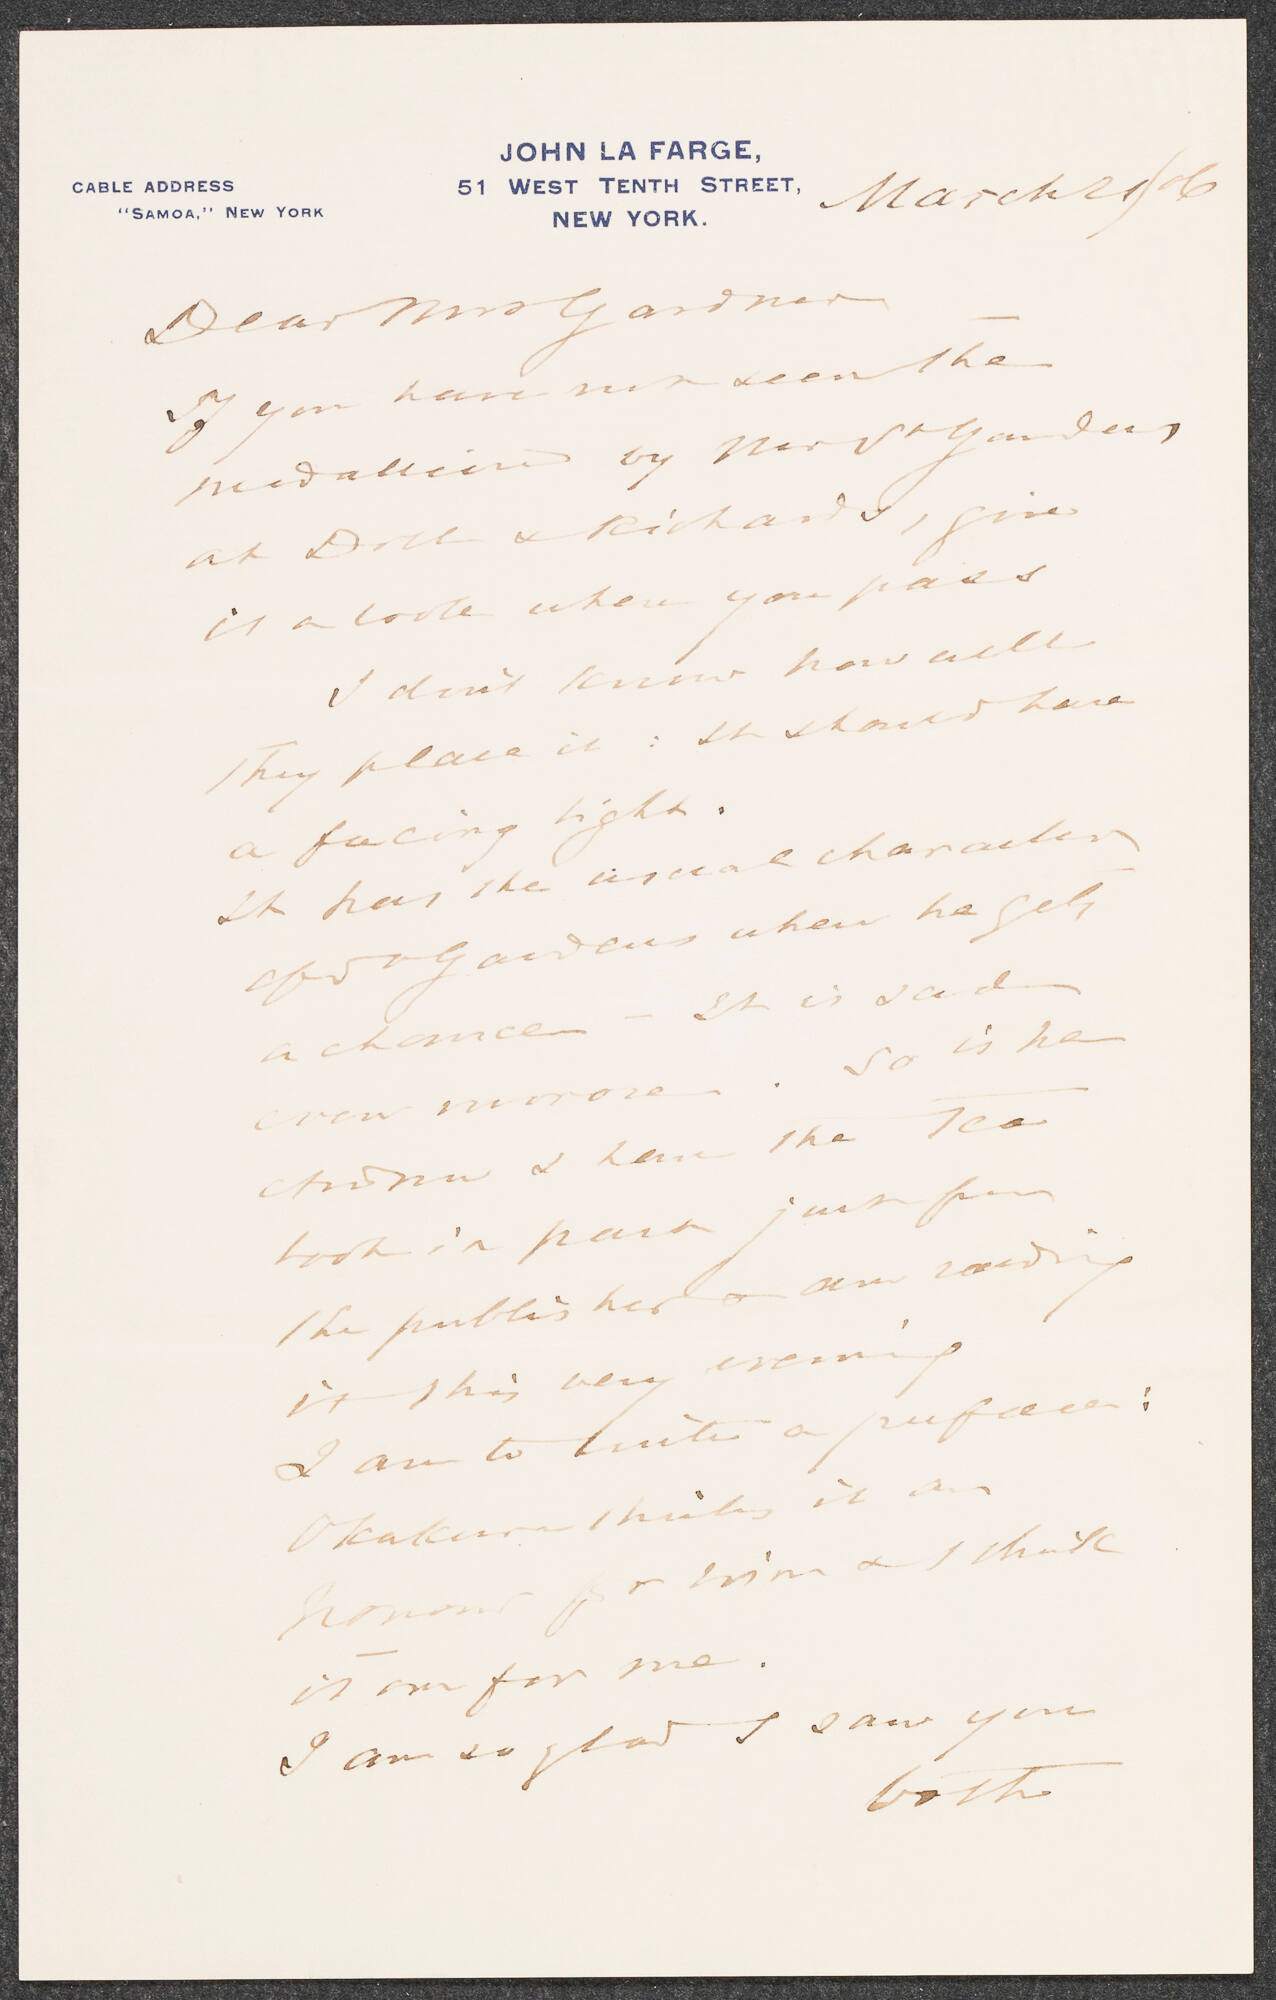 JOHN LA FARGE,
51 WEST TENTH STREET,
NEW YORK.
CABLE ADDRESS
"SAMOA," NEW YORK
March 21/06
Dear Mrs Gardner
If you have not seen the
medallion by Mr St Gaudens
at Doll & Richards, give
it a look when you pass
I don't know how well
they place it : It should have
a facing light.
It has the usual character
of St Gaudens when he gets
a chance – It is sad
even morose. So is he
& have the Tea
book in part just from
the publisher & am reading
it this very evening
I am to write a preface:
Okakura thinks it an
honour for him & I think
it one for me.
I am so glad I saw you
both